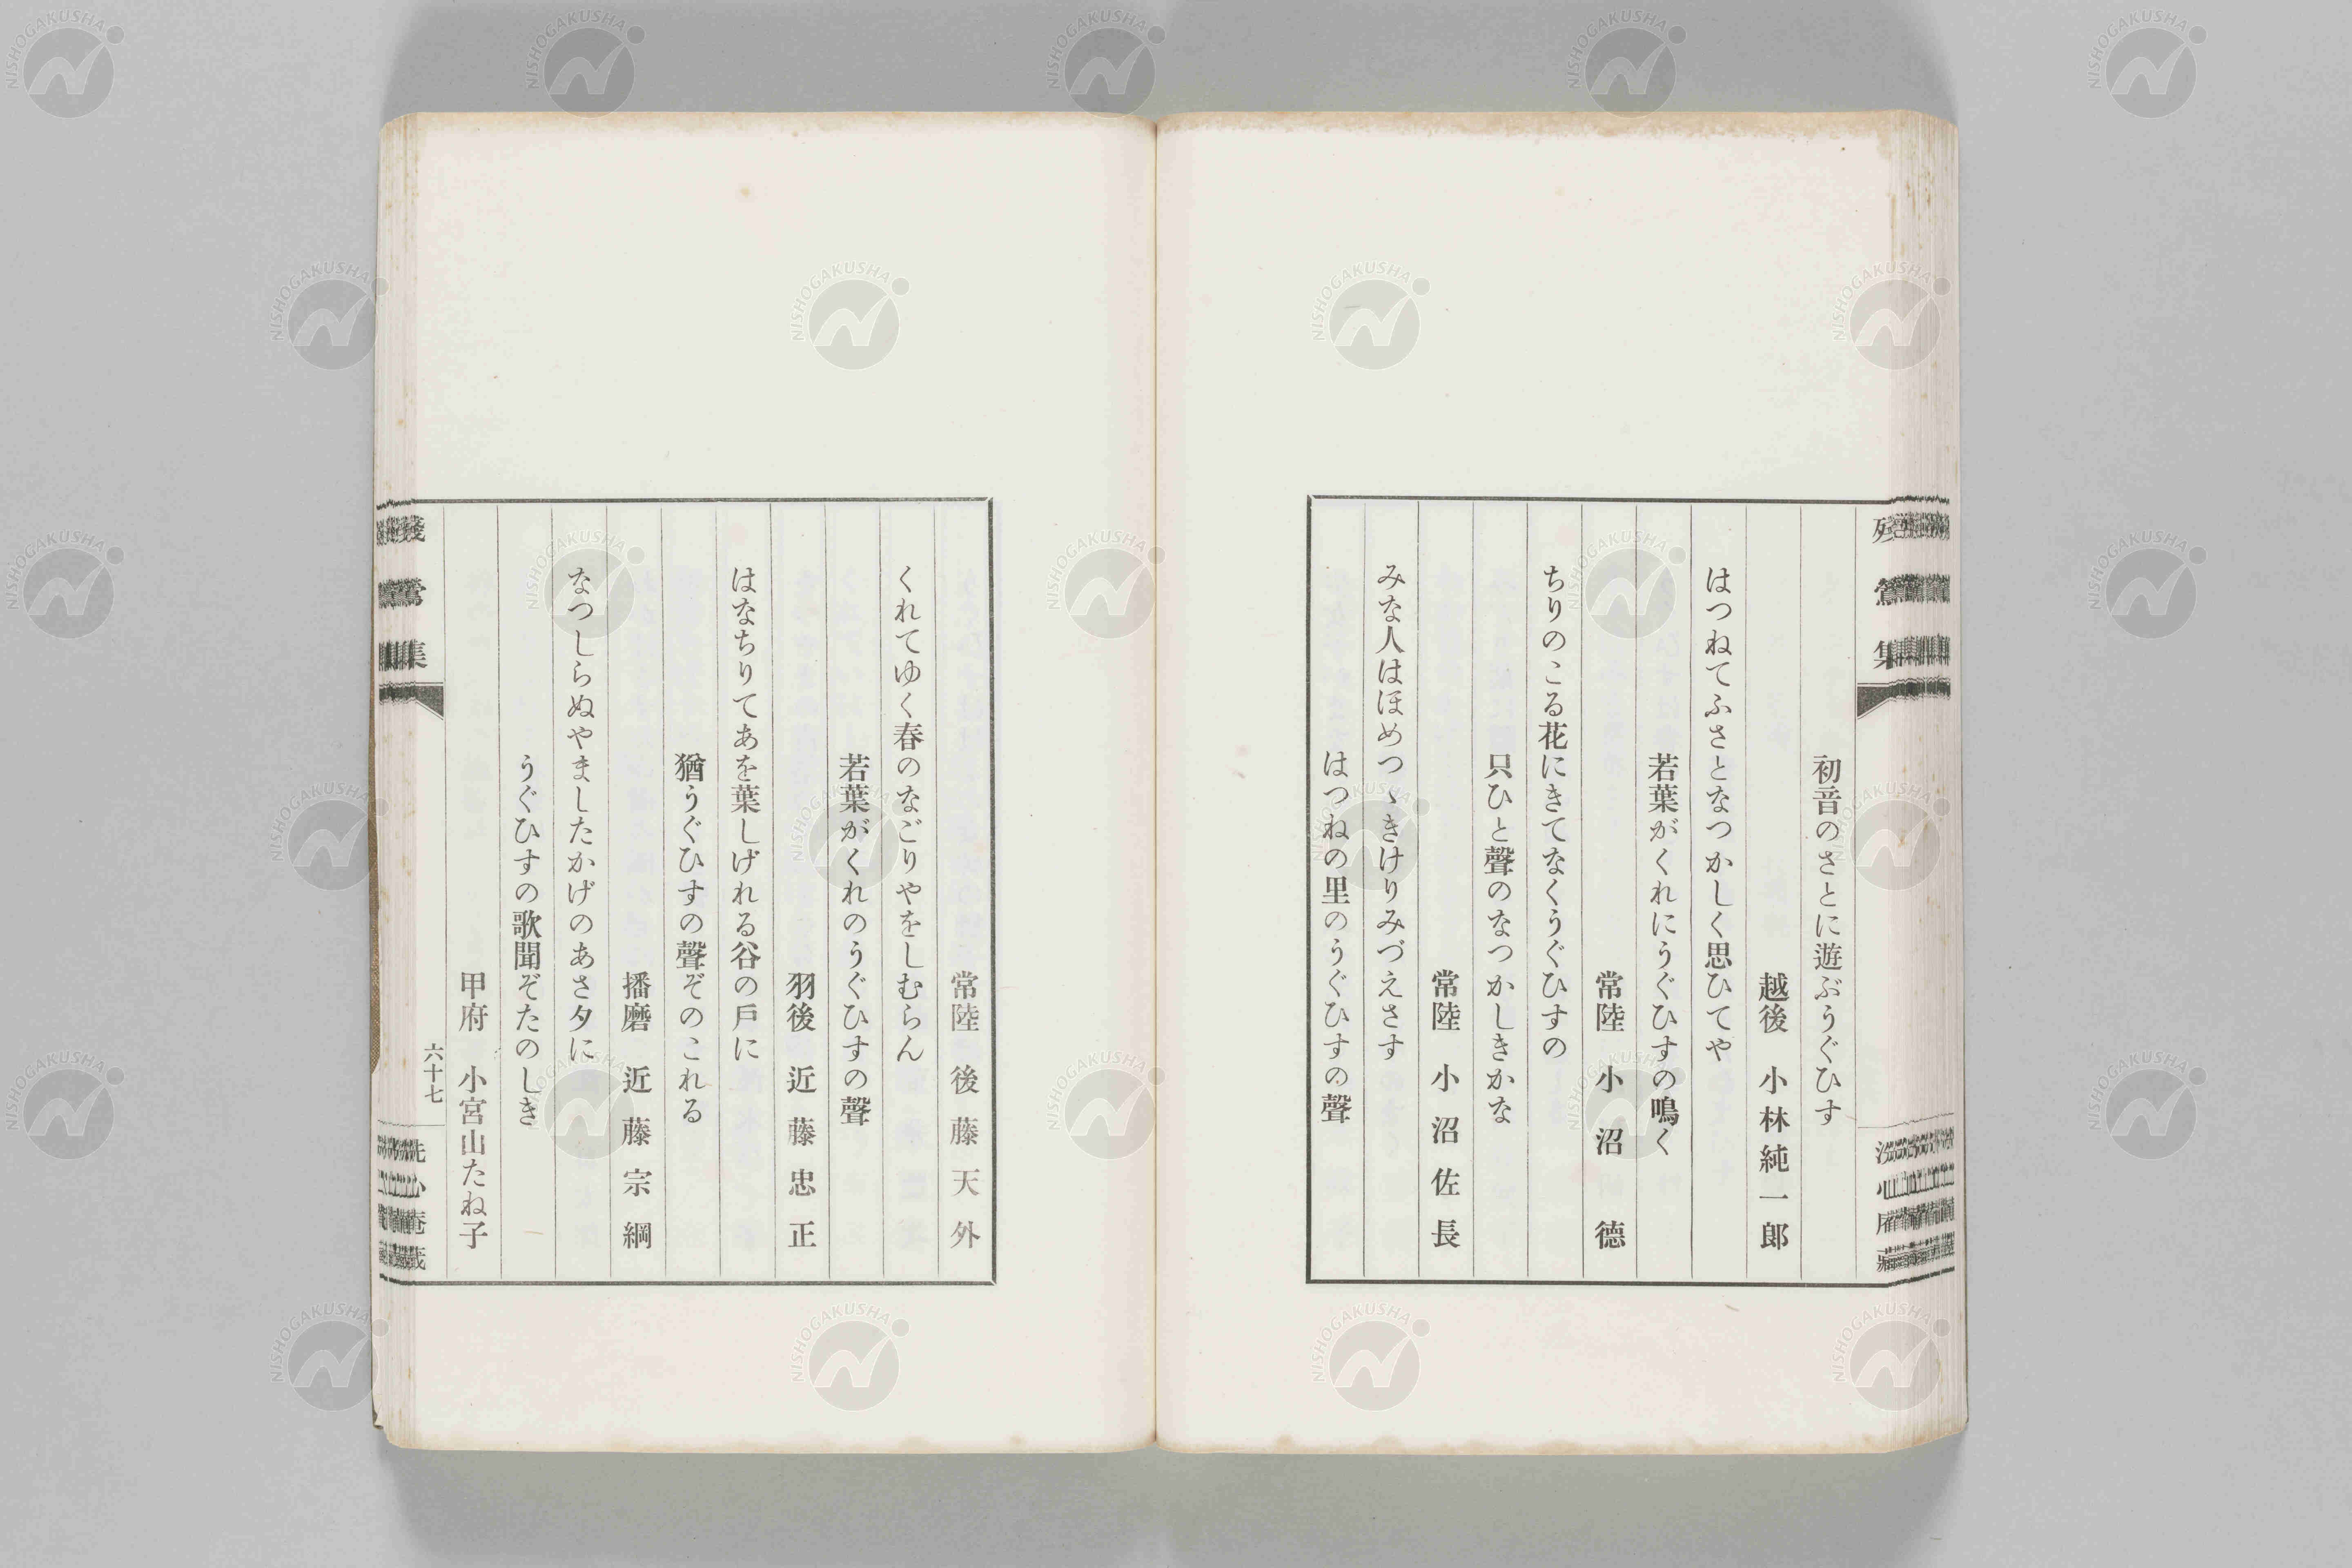 殘鶯集
初音のさとに遊ぶうぐひす
越後 小林純一郞
はつねてふさとなつかしく思ひてや
若葉がくれにうぐひすの鳴く
常陸 小沼德
ちりのこる花にきてなくうぐひすの
只ひと聲のなつかしきかな
常陸 小沼佐長
みな人はほめつゝきけりみづえさす
はつねの里のうぐひすの聲
常陸 後藤天外
くれてゆく春のなごりやをしむらん
若葉がくれのうぐひすの聲
羽後 近藤忠正
はなちりてあを葉しげれる谷の戶に
猶うぐひすの聲ぞのこれる
播磨 近藤宗綱
なつしらぬやましたかげのあさ夕に
うぐひすの歌聞ぞたのしき
甲府 小宮山たね子
殘鶯集
六十七
NISHOGAKUSHA